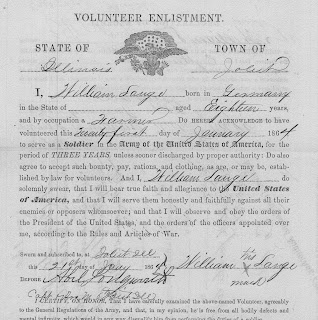 VOLUNTEER ENLISTMENT.
STATE OF TOWN OF
Illinois Joliet
I, William Lange born in Germany
in the State of aged Eighteen years,
and by occupation a Farmer Do hereby acknowledge to have
volunteered this Twenty first day of January 1864
to serve as a Soldier in the Army of the United States of America, for the
period of THREE YEARS, unless sooner discharged by proper authority: Do also
agree to accept such bounty, pay, rations, and clothing, as are, or may be, estab-
lished by law for volunteers. And I, William Lange do
solemnly swear, that I will bear true faith and allegiance to the United States
of America, and that I will serve them honestly and faithfully against all their
enemies or opposers whomsoever; and that I will observe and obey the orders of
the President of the United States, and the orders of the officers appointed over
me, according to the Rules and Articles of War.
Sworn and subscribed to, at Joliet Ill
this 21st day of Jany 1864 William his Lange
Before mark
I certify, on honor, That I have carefully examined the above-named Volunteer, agreeably
to the General Regulations of the Army, and that, in my opinion, he is free from all bodily defects and
mental infirmity, which would in any way disqualify him from performing the duties of a soldier